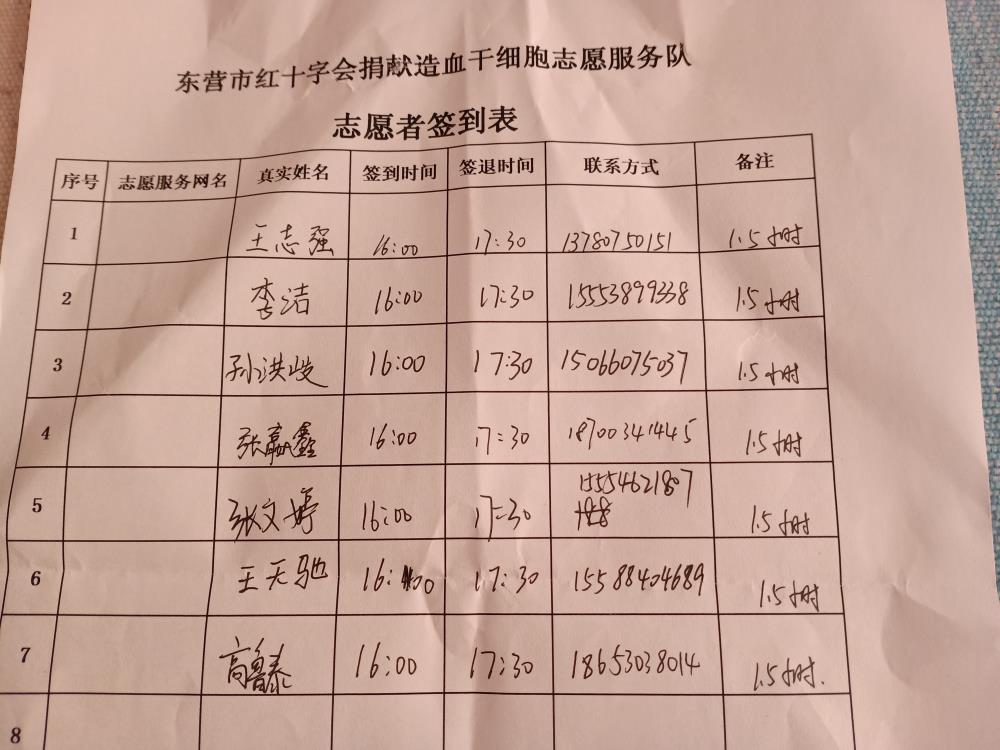 东营市红十字会捐献造血干细胞志愿服务队
志愿者签到表
序号 志愿服务网名 真实姓名 签到时间 签退时间 联系方式 备注
1 王志强 16:00 17:30 13780750151 1.5小时
2 李洁 16:00 17:30 15553899338 1.5小时
3 孙洪岐 16:00 17:30 15066075037 1.5小时
4 张赢鑫 16:00 17:30 18700341445 1.5小时
5 张文婷 16:00 17:30 15554621807 1.5小时
6 王天驰 16:00 17:30 15588404689 1.5小时
7 高鲁泰 16:00 17:30 18653038014 1.5小时.
8